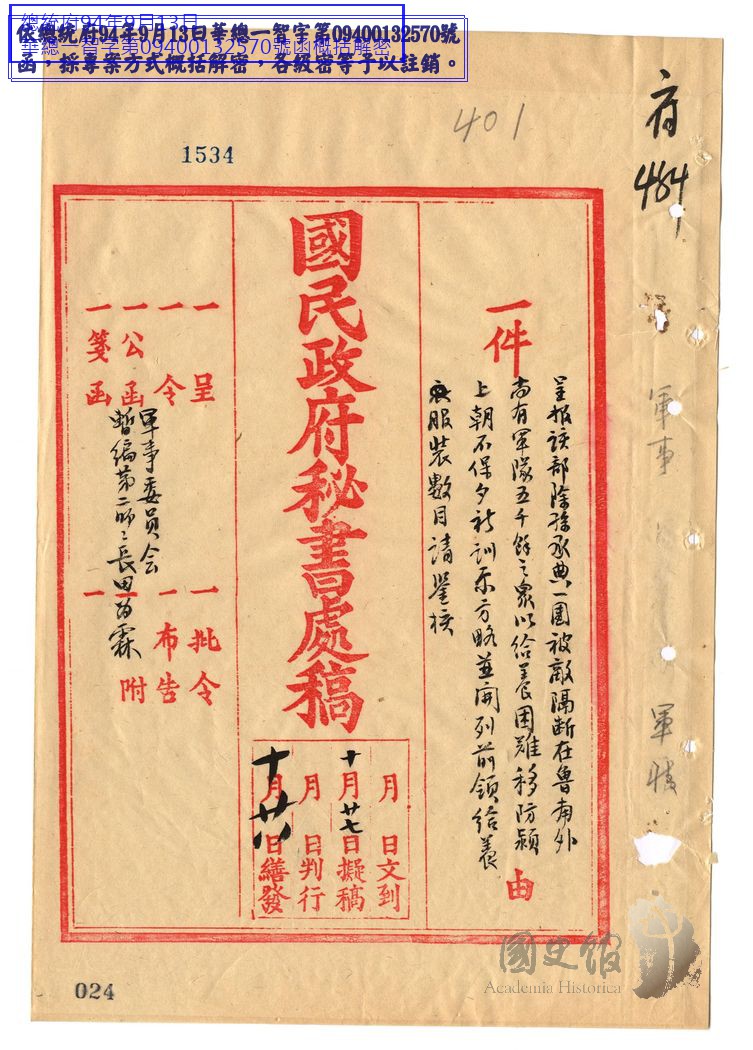 總統府94年9月13日
華總一智字第09400132570號函概括解密
依總統府94年9月13日華總一智字第09400132570號
函，採專案方式概括解密，各級密等予以註銷。
401
1534
府
484
軍事
軍情
一件
呈報該部除孫承典一團被敵隔斷在魯南外
尚有軍隊五千餘之衆以給養困難移防潁
上朝不保夕祈訓示方略並開列前領給養
服裝數目請鑒核
由
國民政府秘書處稿
月日文到
十月廿七日擬稿
月日判行
十月廿八日繕發
一呈
一令
一公函
一箋函
一批令
一布告
一附
軍事委員会
暫編第二師師長田
霖
024
國史館
Academia Historica